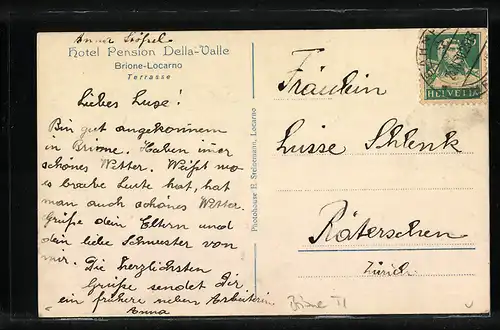 Anna Stössel
Hotel Pension Della-Valle
Brione-Locarno
Terrasse
Liebes Luse!
Bin gut angekommen
in Brione. Haben imer
schönes Wetter. Weißt wo
es brave Leute hat, hat
man auch schönes Wetter.
Grüße dein Eltern und
dein liebe Schwester von
mir. Die herzlichsten
Grüße sendet Dir
ein frühere neben Arbeiterin
Anna
Photohouse E. Steinemann, Locarno
HELVETIA
Fräulein
Luise Schlenk
Räterschen
Zürich.
Brione TI